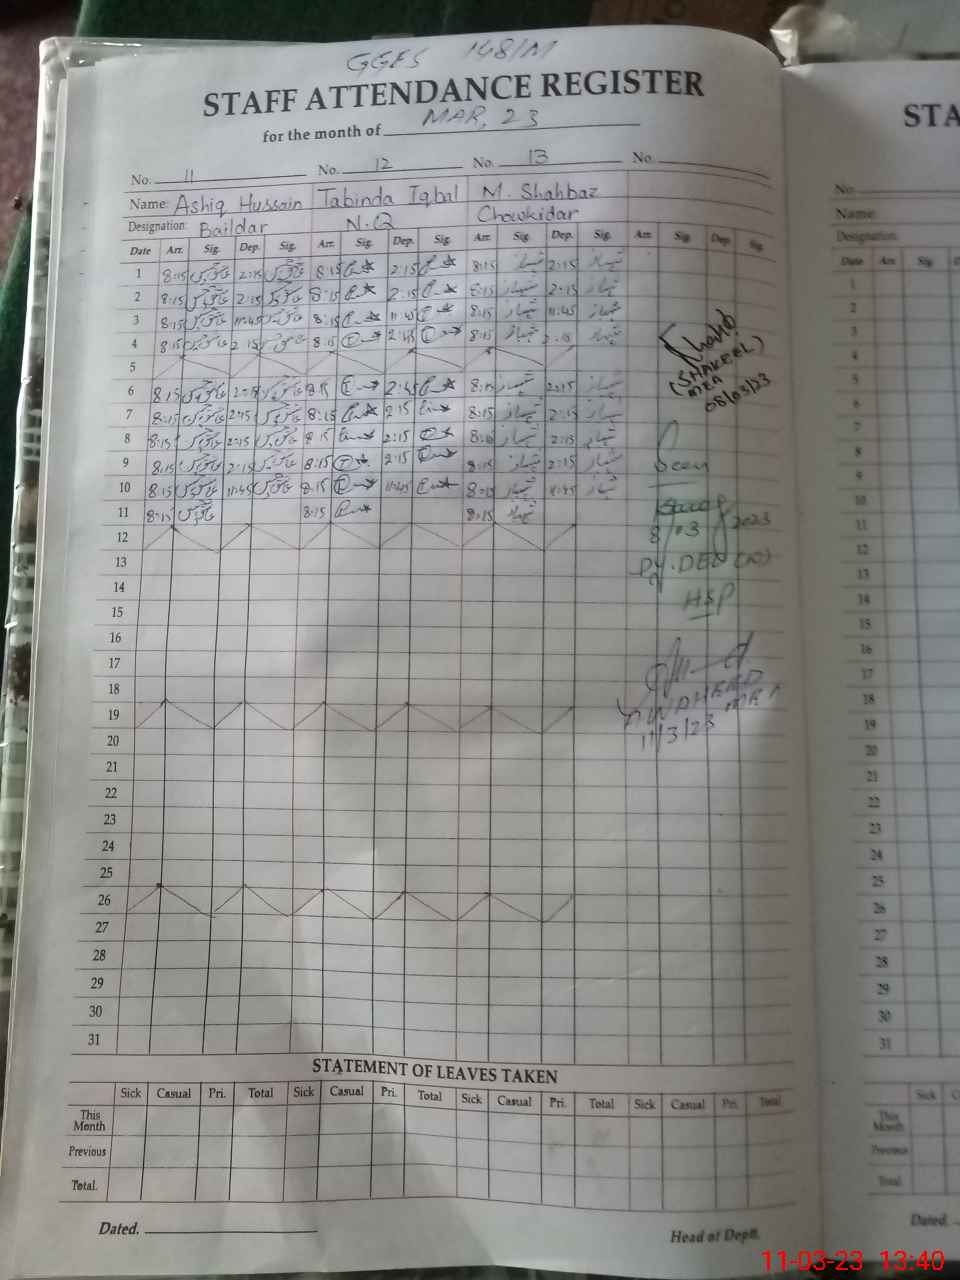 GGES 148/M
STAFF ATTENDANCE REGISTER
for the month of MAR, 23
No. 11 No. 12 No. 13 No.
Name: Ashiq Hussain Tabinda Iqbal M. Shahbaz
Designation: Baildar N.Q Chowkidar
Date Arr. Sig. Dep. Sig. Arr. Sig. Dep. Sig. Arr. Sig. Dep. Sig. Arr. Sig. Dep Sig.
1 8:15 2:15 8:15 2:15 8:15 شہباز 2:15 شہباز
2 8:15 2:15 8:15 2:15 8:15 شہباز 2:15 شہباز
3 8:15 11:45 8:15 11:45 8:15 شہباز 11:45 شہباز
4 8:15 2:15 8:15 2:45 8:15 شہباز شہباز
5
6 8:15 8:15 2:45 شہباز 2:15 شہباز
7 8:15 2:15 8:15 2:15 8:15 شہباز 2:15 شہباز
8 8:15 2:15 8:15 2:15 شہباز 2:15 شہباز
9 8:15 2:15 8:15 2:15 8:15 شہباز 2:15 شہباز
10 8:15 11:45 8:15 11:45 شہباز 11:45 شہباز
11 8:15 8:15 8:15 شہباز
12
13
14
15
16
17
18
19
20
21
22
23
24
25
26
27
28
29
30
31
(SHAKEEL)
MEA
08/03/23
Seen
8/03 2023
Dy. DEO (W)
HSP
WAHEED MEA
11/3/23
STATEMENT OF LEAVES TAKEN
Sick Casual Pri. Total Sick Casual Pri. Total Sick Casual Pri. Total Sick Casual Pri. Total
This Month
Previous
Total.
Dated. Head of Deptt.
STA
No.
Name:
Designation:
Date Arr. Sig.
1
2
3
4
5
6
7
8
9
10
11
12
13
14
15
16
17
18
19
20
21
22
23
24
25
26
27
28
29
30
31
Sick
This Month
Previous
Total
Dated.
11-03-23 13:40